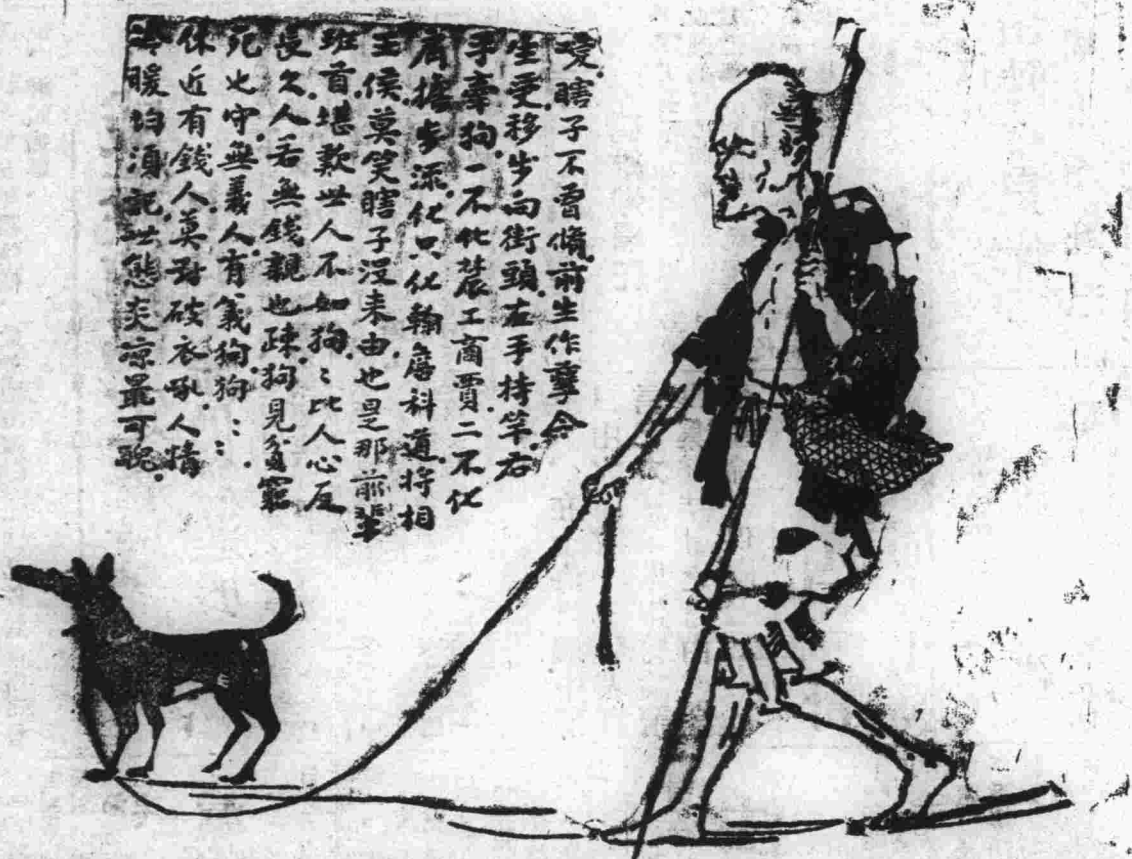 嘆瞎子不曾脩前生作孽今
生受移步向街頭左手持竿右
手牽狗一不化農工商賈二不化
肩擔步流化只化翰詹科道將相
王侯莫笑瞎子沒來由也是那前輩
班首堪歎世人不如狗〻比人心反
長久人若無錢親也疎狗見貧窮
死也守無義人有義狗狗〻〻
休近有錢人莫對破衣吼人情
冷暖均須記世態炎涼最可